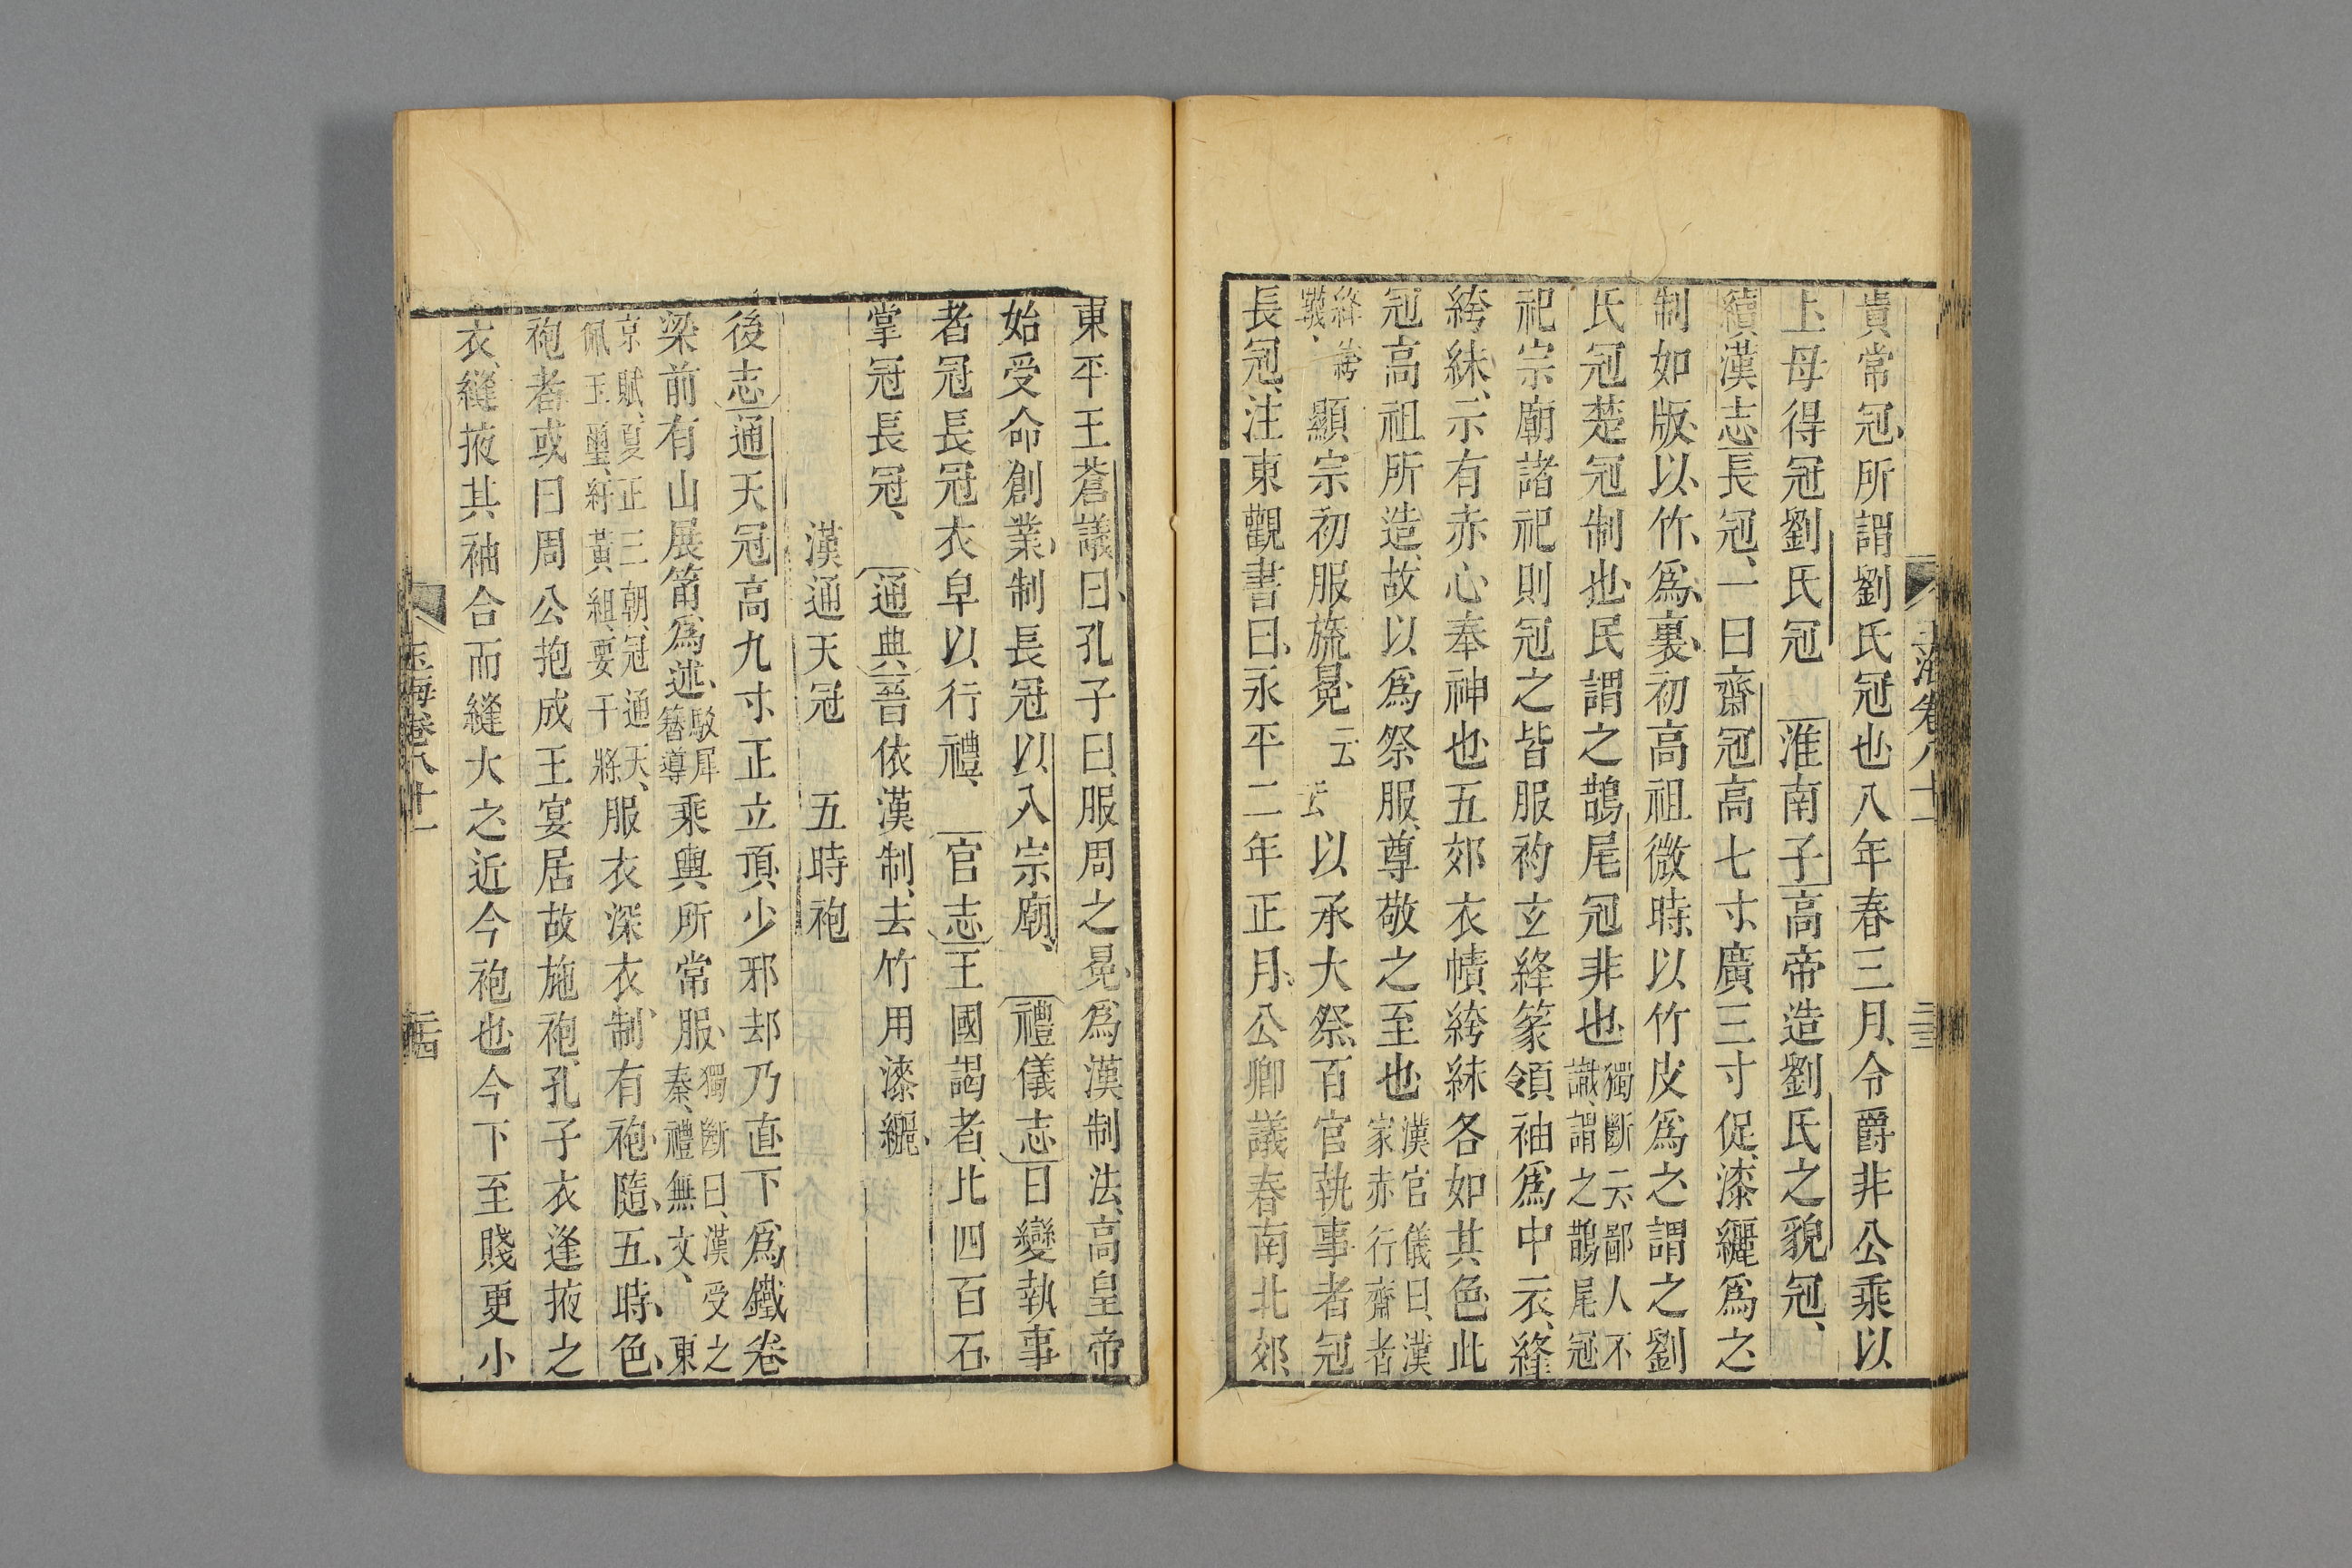 貴常冠所謂劉氏冠也八年春三月令爵非公乘以
上母得冠劉氏冠 淮南子高帝造劉氏之貌冠
續漢志長冠一曰齋冠高七寸廣三寸促漆纚爲之
制如版以竹爲裏初高祖微時以竹皮爲之謂之劉
氏冠楚冠制也民謂之鵲尾冠非也獨斷云鄙人不識謂之鵲尾冠
祀宗廟諸祀則冠之皆服袀玄絳篆領袖爲中衣絳
絝紣示有赤心奉神也五郊衣幘絝紣各如其色此
冠高祖所造故以爲祭服尊敬之至也漢官儀曰漢家赤行齋者
絳絝韈顯宗初服旒冕云云以承大祭百官執事者冠
長冠注東觀書曰永平二年正月公卿議春南北郊
東平王蒼議曰孔子曰服周之冕爲漢制法高皇帝
始受命創業制長冠以入宗廟 禮儀志日變執事
者冠長冠衣皁以行禮 官志王國謁者比四百石
掌冠長冠 通典晉依漢制去竹用漆纚
漢通天冠 五時袍
後志通天冠高九寸正立頂少邪却乃直下爲鐵卷
梁前有山展筩爲述駮犀簪導乘輿所常服獨斷曰漢受之秦禮無文東
京賦夏正三朝冠通天佩玉璽紆黃組要干將服衣深衣制有袍隨五時色
袍者或曰周公抱成王宴居故施袍孔子衣逢掖之
衣縫掖其袖合而縫大之近今袍也今下至賤更小
玉海卷八十一